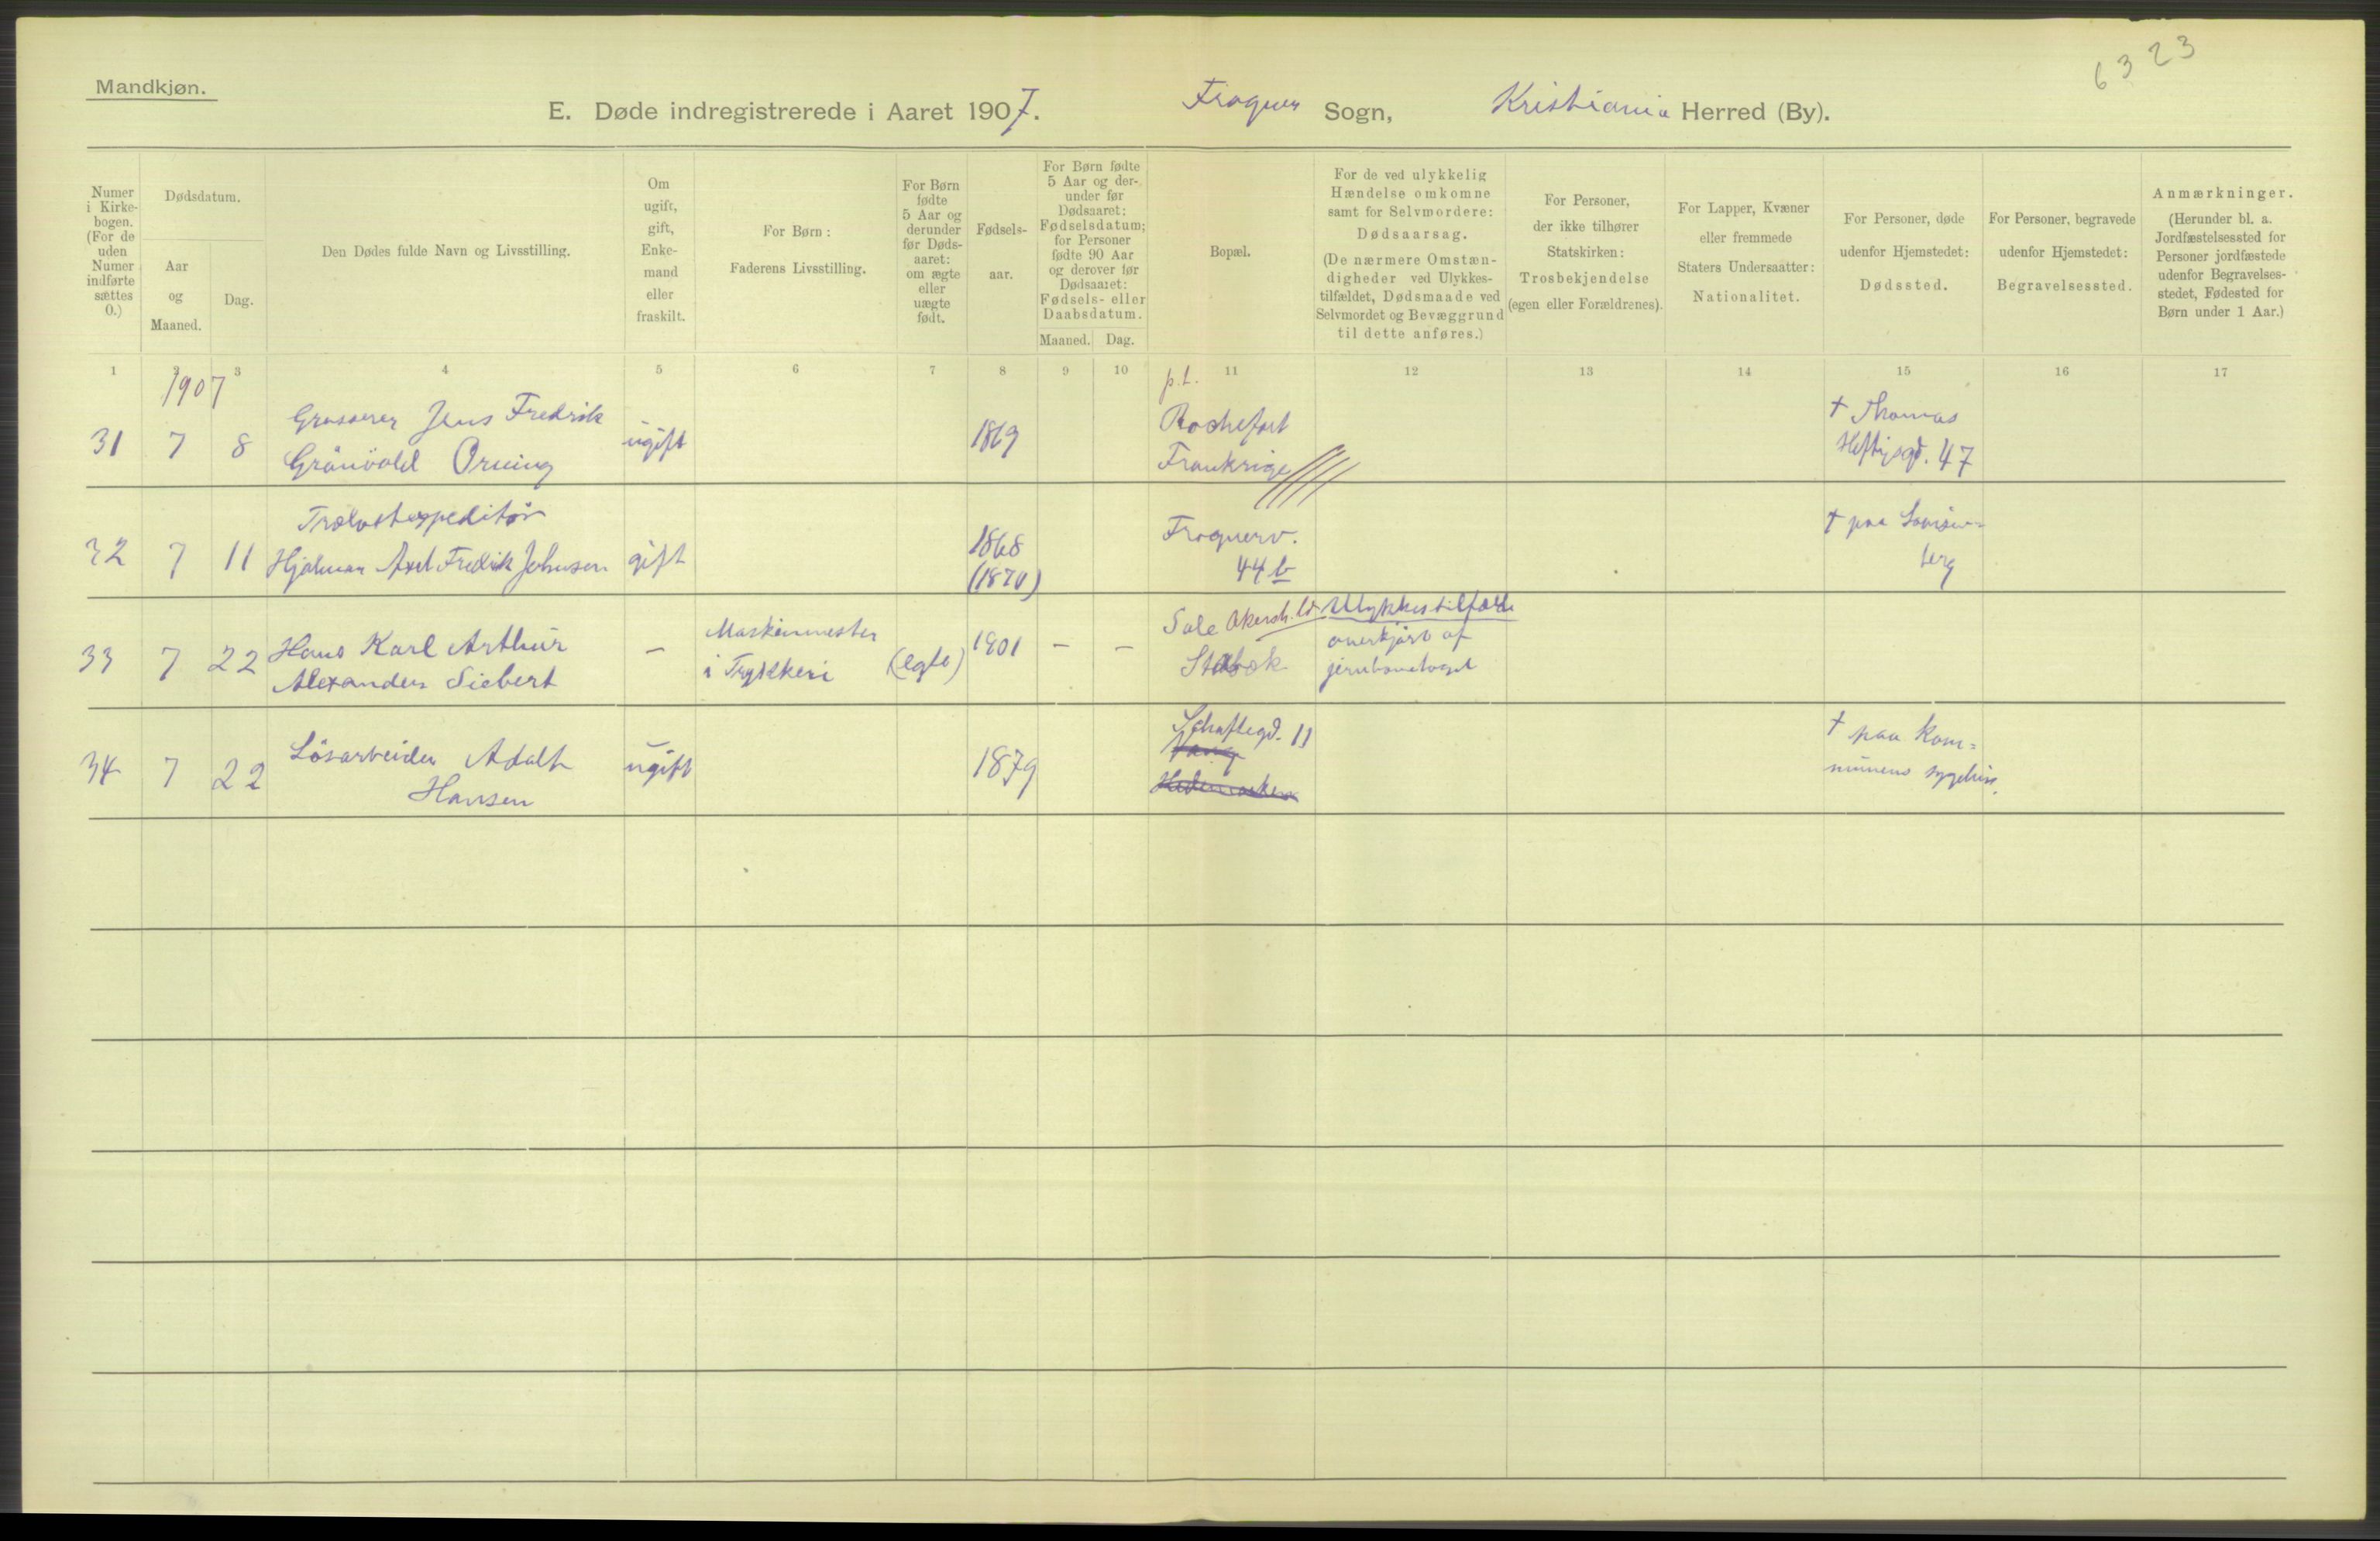 6323
Mandkjøn.
E. Døde indregistrerede i Aaret 1907. Frogner Sogn, Kristiania Herred (By).
Numer i Kirke-bogen. (For de uden Numer indførte sættes 0.)
Dødsdatum.
Aar og Maaned.
Dag.
Den Dødes fulde Navn og Livsstilling.
Om ugift, gift, Enke-mand eller fraskilt.
For Børn:
Faderens Livsstilling.
For Børn fødte 5 Aar og derunder før Døds-aaret: om ægte eller uægte født.
Fødsels-aar.
For Børn fødte 5 Aar og der-under før Dødsaaret: Fødselsdatum; for Personer fødte 90 Aar og derover før Dødsaaret: Fødsels- eller Daabsdatum.
Maaned. Dag.
Bopæl.
For de ved ulykkelig Hændelse omkomne samt for Selvmordere: Dødsaarsag. (De nærmere Omstæn-digheder ved Ulykkes-tilfældet, Dødsmaade ved Selvmordet og Bevæggrund til dette anføres.)
For Personer, der ikke tilhører Statskirken: Trosbekjendelse (egen eller Forældrenes).
For Lapper, Kvæner eller fremmede Staters Undersaatter: Nationalitet.
For Personer, døde udenfor Hjemstedet: Dødssted.
For Personer, begravede udenfor Hjemstedet: Begravelsessted.
Anmærkninger. (Herunder bl. a. Jordfæstelsessted for Personer jordfæstede udenfor Begravelses-stedet, Fødested for Børn under 1 Aar.)
1 2 3 4 5 6 7 8 9 10 11 12 13 14 15 16 17
1907
31 7 8 Grosserer Jens Fredrik
Grönvold Orning
ugift 1869
p.t.
Rochefort
Frankrige
† Thomas
Heftyesgd. 47
32 7 11 Trælastexpeditör
Hjalmar Axel Fredrik Johnsen
gift 1868
(1870)
Frognerv.
44 b
† paa Louisen-
berg
33 7 22 Hans Karl Arthur
Alexander Siebert
— Maskinmester
i Trykkeri
(egte) 1901 — —
Akersh.
Stabæk
Ulykkestilfælde
overkjørt af
jernbanetoget
34 7 22 Lösarbeider Adolf
Hansen
ugift 1879
Schaftegd. 11
Vang
Hedemarken
† paa Kom-
munens sygehus.